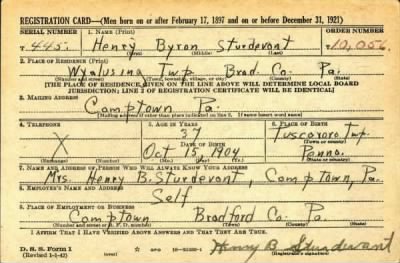 REGISTRATION CARD—(Men born on or after February 17, 1897 and on or before December 31, 1921)
SERIAL NUMBER 1. NAME (Print) ORDER NUMBER
T 445 Henry Byron Sturdevant 10,056
(First) (Middle) (Last)
2. PLACE OF RESIDENCE (Print)
Wyalusing Twp Brad. Co. Pa.
(Number and street) (Town, township, village, or city) (County) (State)
[THE PLACE OF RESIDENCE GIVEN ON THE LINE ABOVE WILL DETERMINE LOCAL BOARD
JURISDICTION; LINE 2 OF REGISTRATION CERTIFICATE WILL BE IDENTICAL]
3. MAILING ADDRESS
Camptown Pa.
[Mailing address if other than place indicated on line 2. If same insert word same]
4. TELEPHONE 5. AGE IN YEARS 6. PLACE OF BIRTH
37 Tuscarora Twp.
DATE OF BIRTH (Town or county)
X Oct 15 1904 Penna.
(Exchange) (Number) (Mo.) (Day) (Yr.) (State or country)
7. NAME AND ADDRESS OF PERSON WHO WILL ALWAYS KNOW YOUR ADDRESS
Mrs. Henry B. Sturdevant, Camptown, Pa.
8. EMPLOYER'S NAME AND ADDRESS
Self
9. PLACE OF EMPLOYMENT OR BUSINESS
Camptown Bradford Co. Pa.
(Number and street or R. F. D. number) (Town) (County) (State)
I AFFIRM THAT I HAVE VERIFIED ABOVE ANSWERS AND THAT THEY ARE TRUE.
D. S. S. Form 1
(Revised 1-1-42) GPO Henry B Sturdevant
(Registrant's signature)